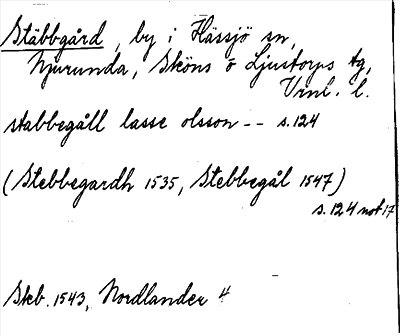 Stäbbgård, by i Hässjö sn,
Njurunda, Sköns o Ljustorps tg,
Vrnl. l.
stabbegåll lasse olsson -- s. 124
(Stebbegardh 1535, Stebbegål 1547)
s. 124 not 17
Skb. 1543, Nordlander 4